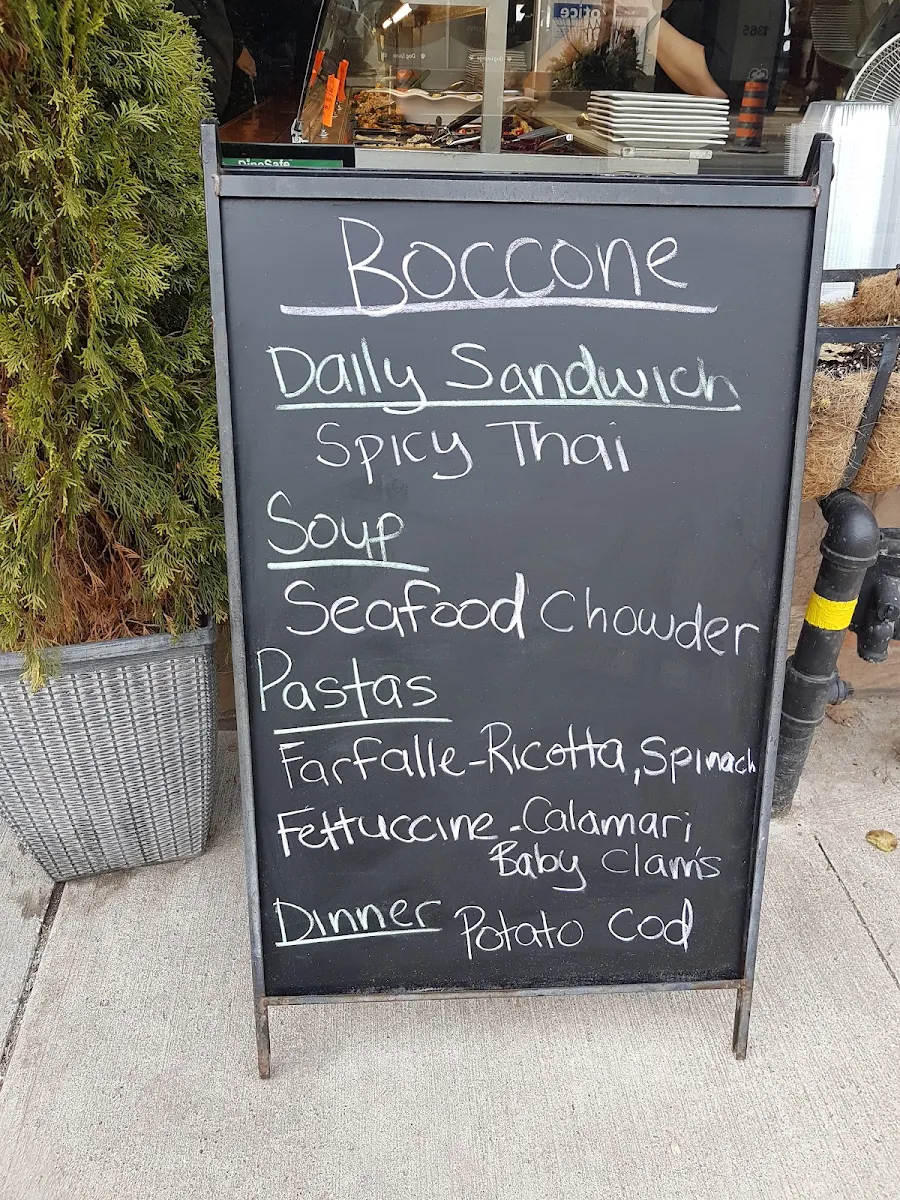 Notice
1365
DineSafe
Boccone
Daily Sandwich
Spicy Thai
Soup
Seafood Chowder
Pastas
Farfalle-Ricotta, Spinach
Fettuccine-Calamari
Baby Clams
Dinner Potato Cod